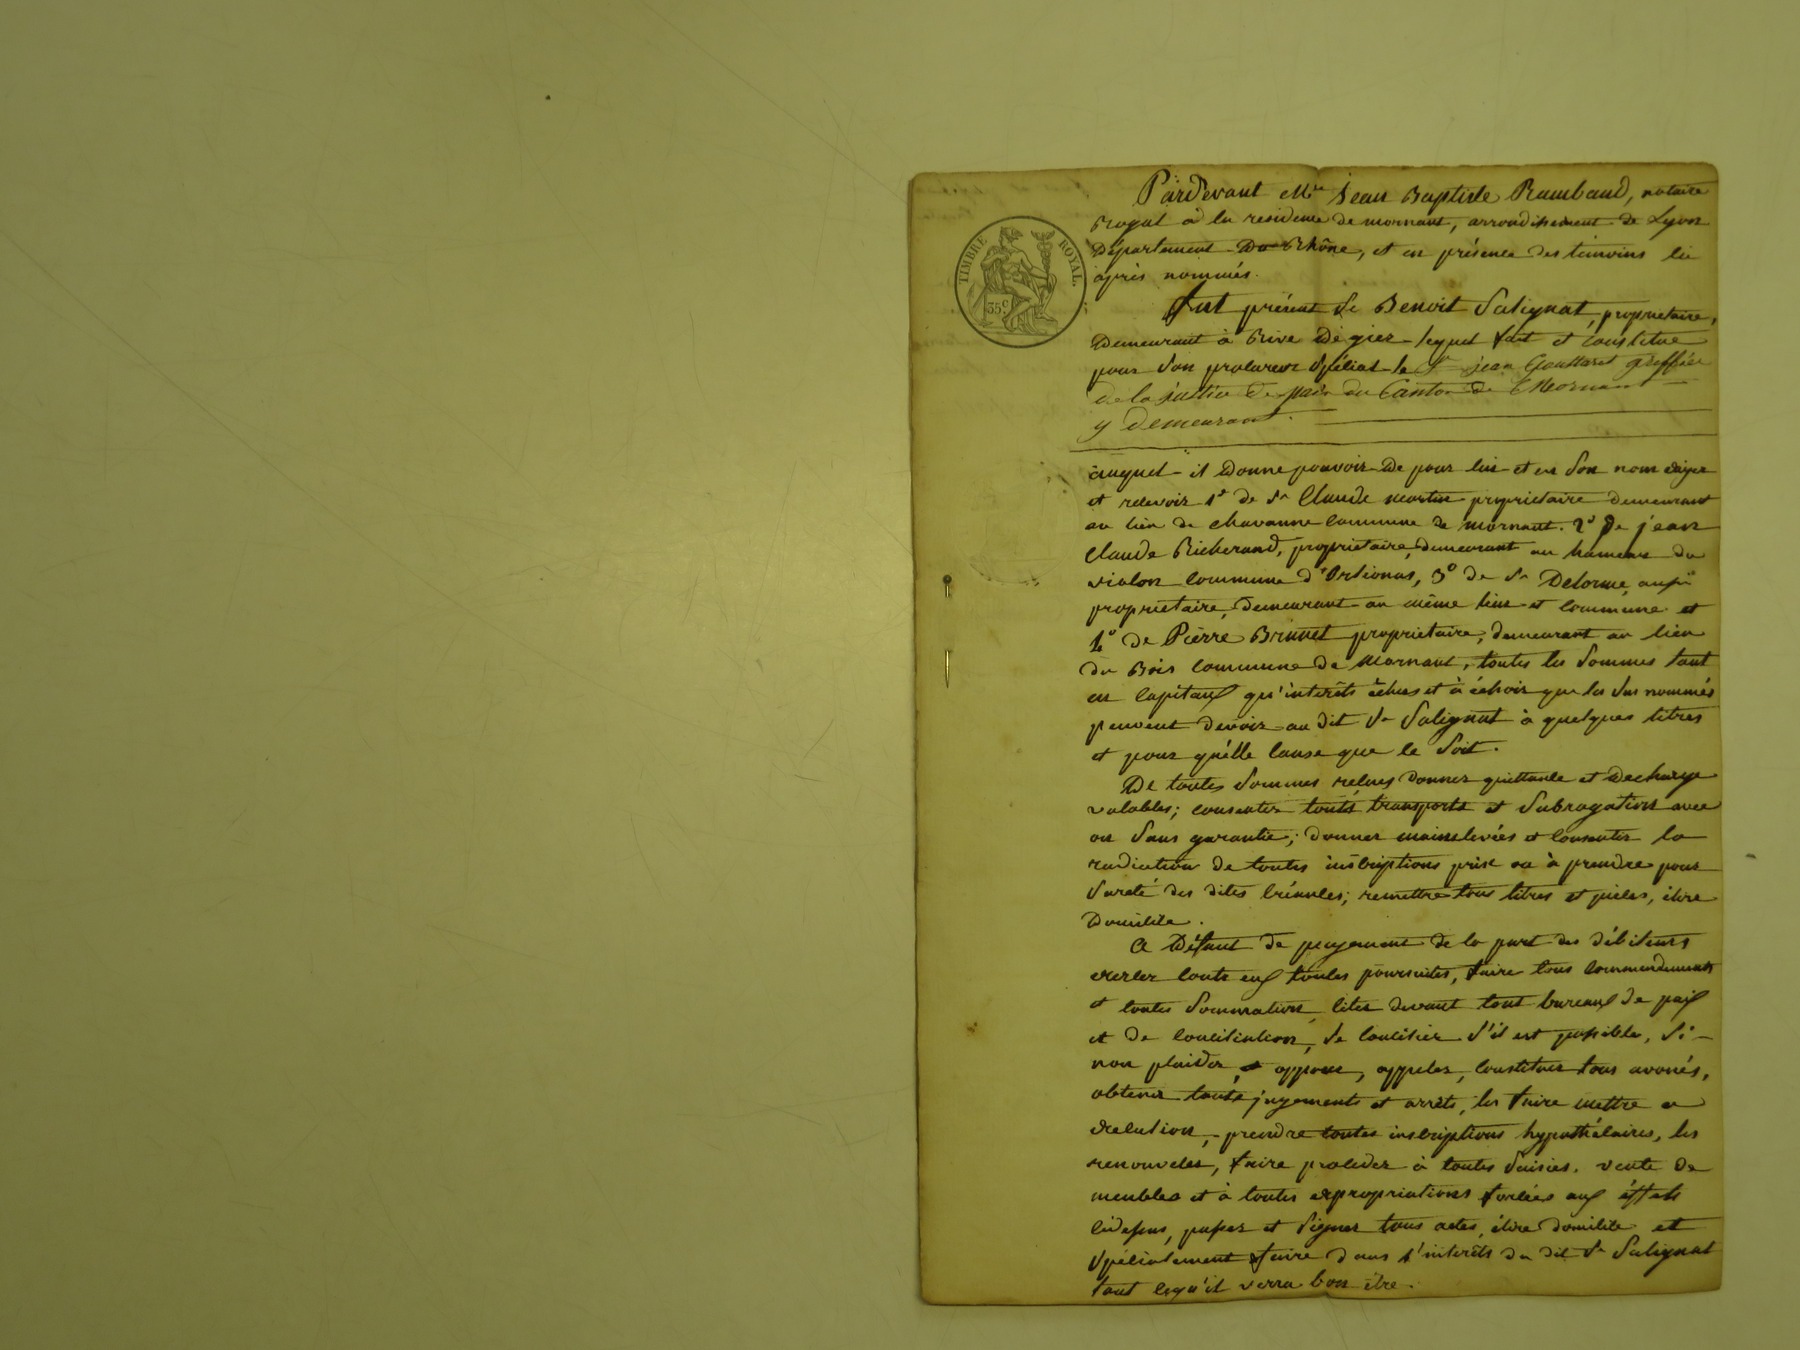 Pardevant Me Jean Baptiste Rambaud, notaire
Royal à la residence de mornant, arrondissement de Lyon
Département Du Rhône, et en présence des témoins ci
après nommés.
TIMBRE ROYAL.
35 c
Fut présent Sr Benoit Salignat, propriétaire,
Demeurant à Rive De gier lequel fait et constitue
pour Son procureur Spécial le Sr jean Gouttaret greffier
de la justice de paix du Canton de Mornant
y demeurant.
auquel il Donne pouvoir De pour lui et en Son nom exiger
et recevoir 1° de Sr Claude martin propriétaire demeurant
au lieu de chavanne commune de mornant. 2° De jean
Claude Richerand, propriétaire, demeurant au hameau du
violon commune d'Orlienas, 3° de Sr Delorme, aussi
propriétaire, demeurant au même lieu et commune et
4° de Pierre Brunet propriétaire, demeurant au lieu
du Bois commune de Mornant, toutes les Sommes tant
en capitaux qu'interêts échus et à échoir que les Sus nommés
peuvent devoir au dit Sr Salignat à quelques titres
et pour quélle cause que ce Soit.
De toutes Sommes reçues Donner quittance et Decharge
valables; consentir touts transports et Subrogation avec
ou Sans garantie; donner mainslevées et consentir la
radiation de toutes inscriptions prise ou à prendre pour
Sureté des dites créances; remettre tous titres et pièces, élire
Domicile.
A Défaut de payement de la part des débiteurs
exercer contr eux toutes poursuites, faire tous commendements
et toutes Sommation, citer devant tout bureaux de paix
et de conciliation, Se concilier S'il est possible, Si-
non plaider, opposer, appeler, constituer tous avoués,
obtenir touts jugements et arrêts, les faire mettre a
execution, prendre toutes inscriptions hypothécaires, les
renouveler, faire proceder à toutes Saisies, vente de
meubles et à toutes expropriations forcées aux éffets
cidessus, passer et Signer tous actes, élire domicile et
Spécialement faire dans l'interêts du dit Sr Salignat
tout cequ'il verra bon être.